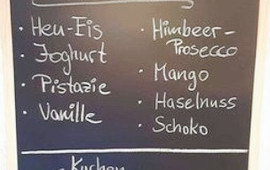 · Heu-Eis
· Joghurt
· Pistazie
· Vanille
· Himbeer-
Prosecco
· Mango
· Haselnuss
· Schoko
Kuchen